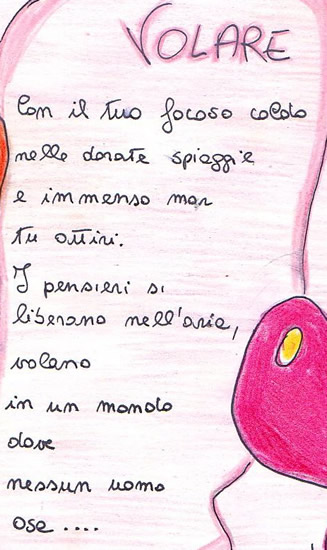 VOLARE
Con il tuo focoso caldo
nelle dorate spiaggie
e immenso mar
tu attiri.
I pensieri si
liberano nell'aria,
volano
in un mondo
dove
nessun uomo
osa ....